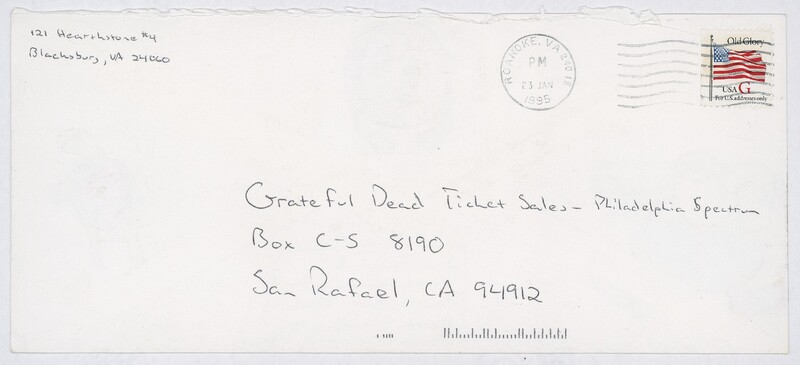 121 Hearthstone #4
Blacksburg, VA 24060
ROANOKE, VA 240
PM
23 JAN
1995
Old Glory
USA G
For U.S. addresses only
Grateful Dead Ticket Sales – Philadelphia Spectrum
Box C-S 8190
San Rafael, CA 94912